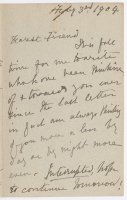 3rd 1909.
Dearest Friend
This full
time for me to write
whom one has been thinking
of & towards you ever
since the last letter
in fact am always thinking
of you more or less by
day or by night more
ever. Interrupted. Hope
to continue tomorrow!